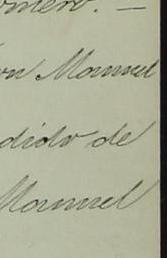 omero. —
on Manuel
dido de
Manuel